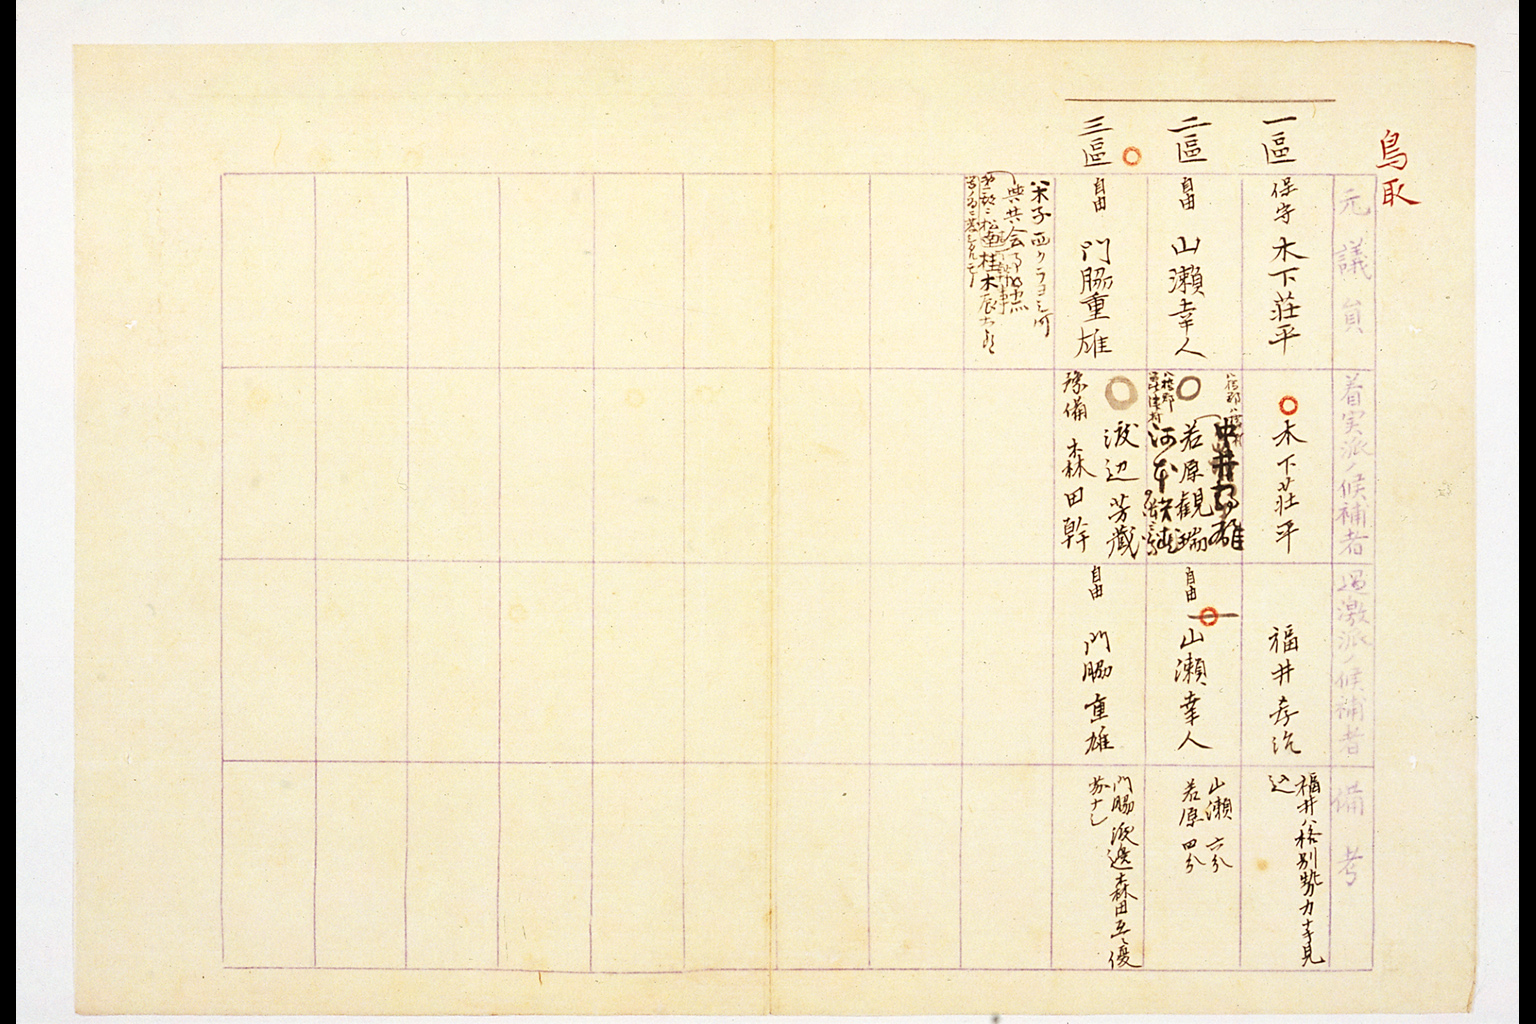 鳥取
元議員
着実派ノ候補者
過激派ノ候補者
備考
一區
保守 木下莊平
木下莊平
福井孝治
福井ハ格別勢力ナキ見
込
二區
自由 山瀬幸人
八橋郡八橋村
中井
雄
若原觀瑞
八橋郡
河本
自由 山瀬幸人
山瀬 六分
若原 四分
三區
自由 門脇重雄
渡辺芳蔵
豫備 森田幹
自由 門脇重雄
門脇渡邊森田互ニ優
劣ナシ
米子
桂木辰太郎